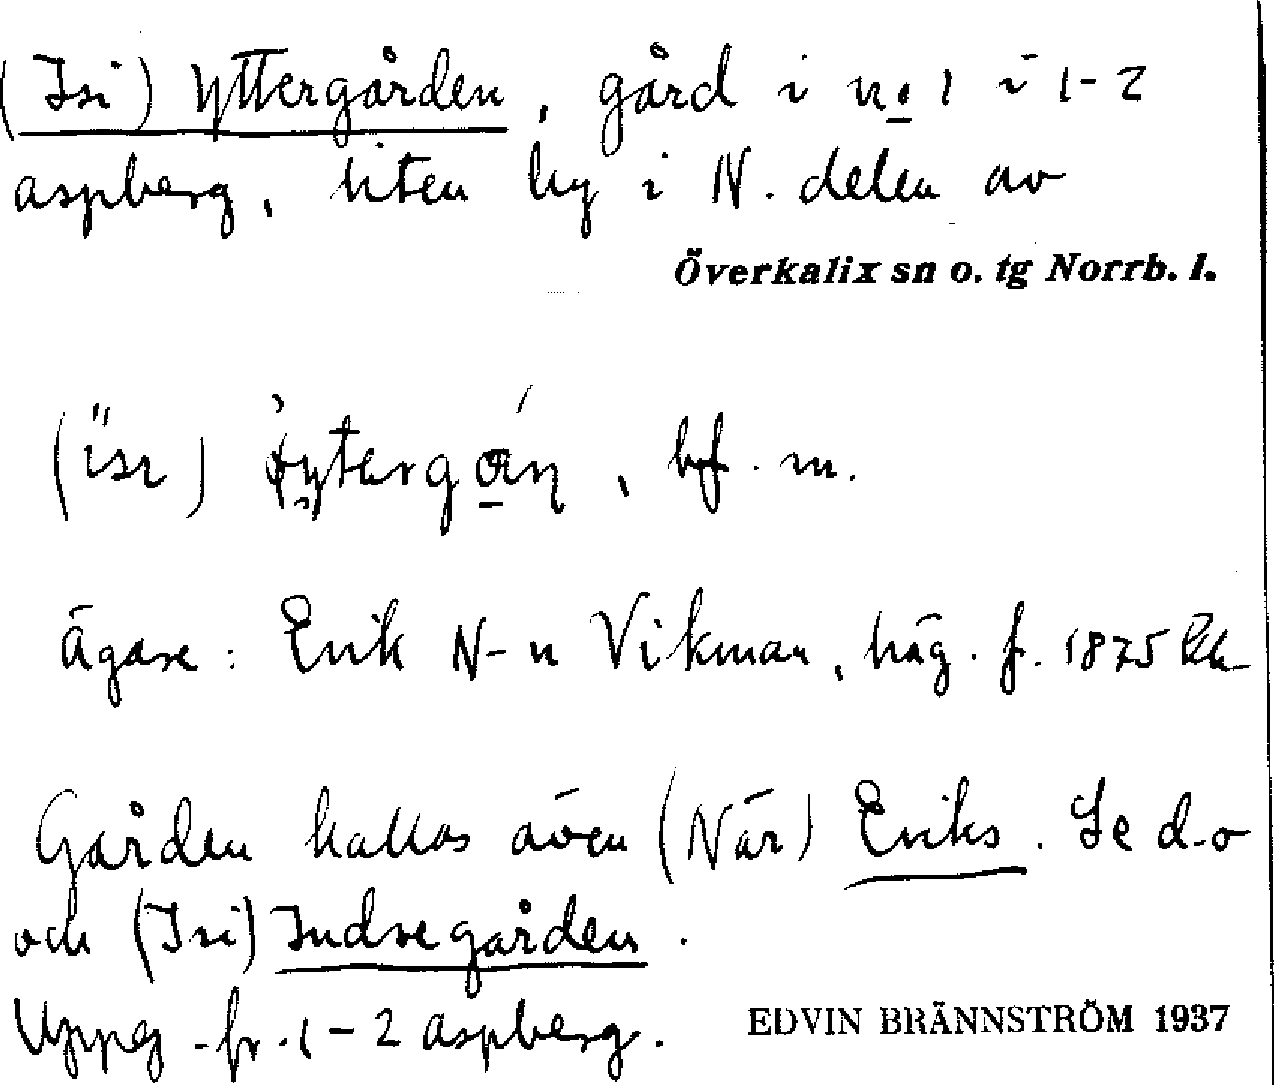 (Isi) Yttergården, gård i n:o 1 i 1-2
aspberg, liten by i N. delen av
Överkalix sn o. tg Norrb. l.
bf. m.
Ägare: Erik N-n Vikman, häg. f. 1875
Gården kallas även (När) Eriks. Se d-o
och (Isi) Indregården.
Uppg. fr. 1-2 aspberg.
EDVIN BRÄNNSTRÖM 1937